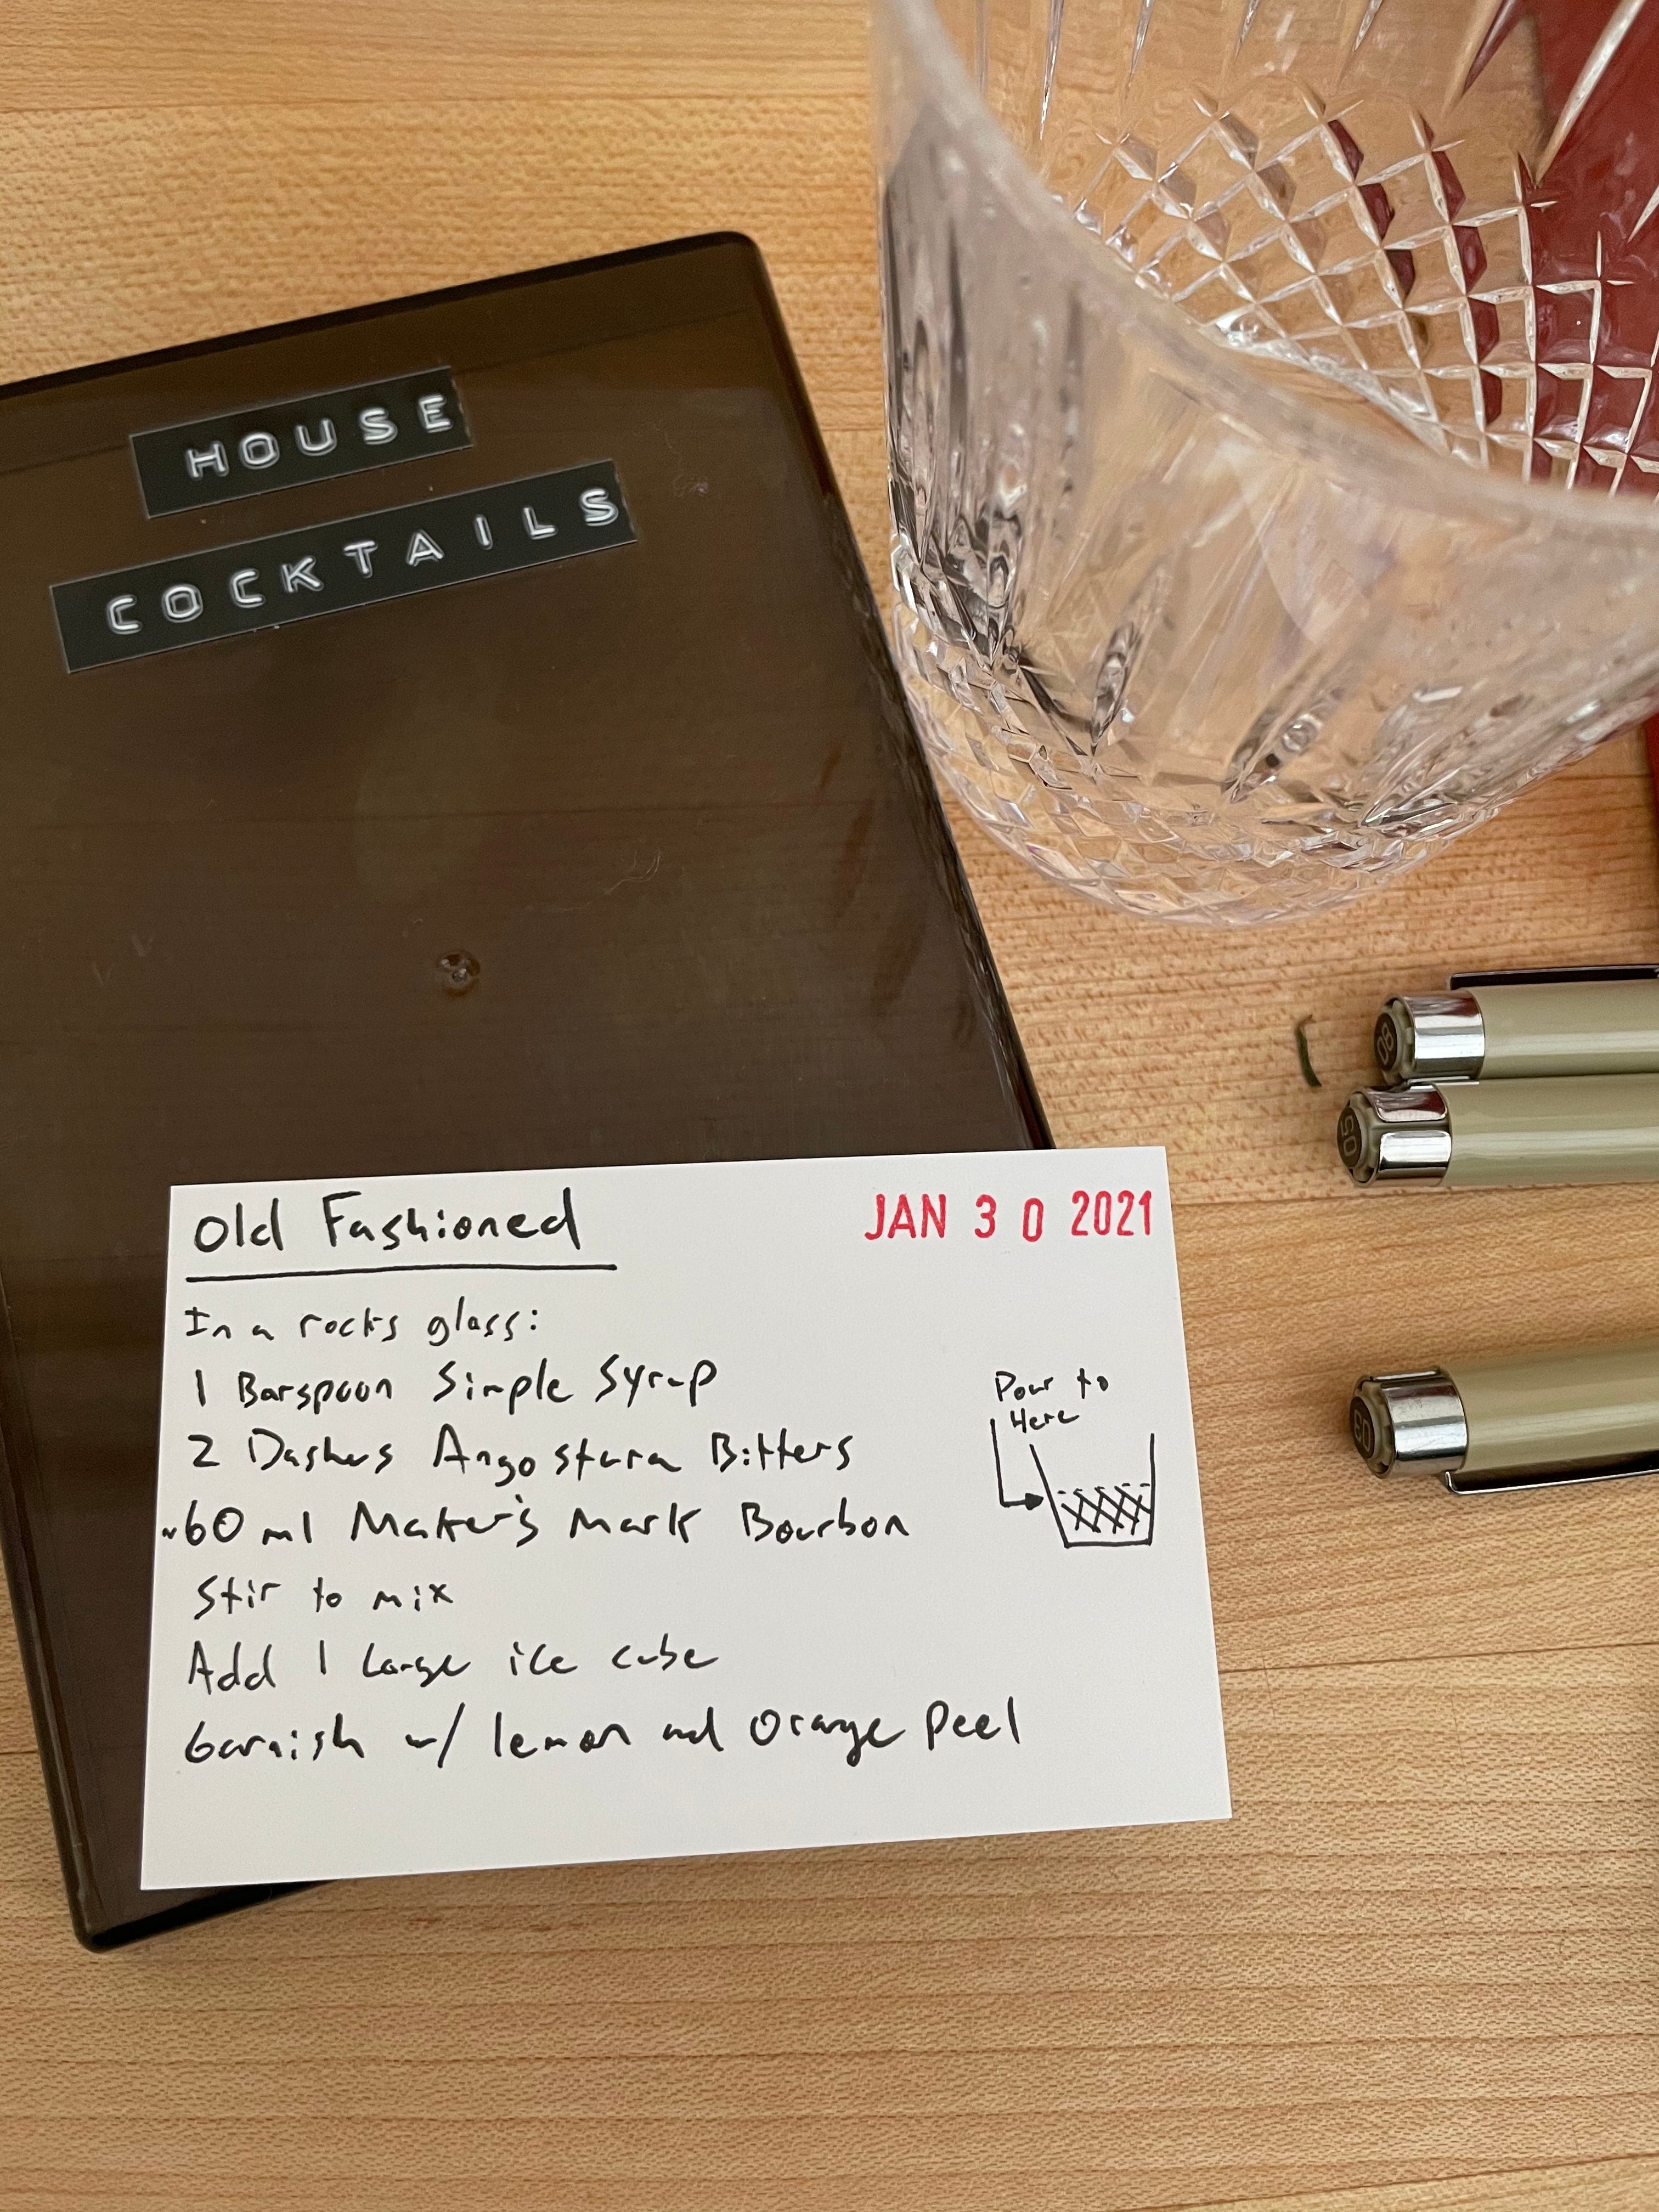 HOUSE
COCKTAILS
08
05
03
Old Fashioned
JAN 30 2021
In a rocks glass:
1 Barspoon Simple Syrup
2 Dashes Angostura Bitters
~60 ml Maker's Mark Bourbon
Stir to mix
Add 1 Large ice cube
Garnish w/ lemon and Orange Peel
Pour to
Here